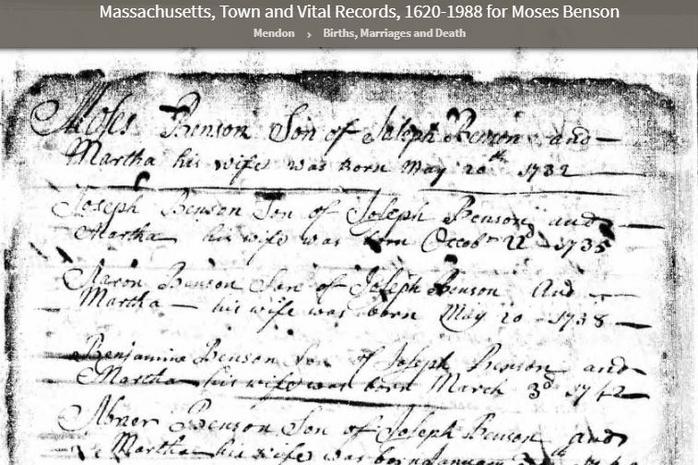 Massachusetts, Town and Vital Records, 1620-1988 for Moses Benson
Mendon › Births, Marriages and Death
Moses Benson Son of Joseph Benson and
Martha his wife was born May 20th 1732
Joseph Benson Son of Joseph Benson and
Martha his wife was born Octobr 22d 1735
Aaron Benson Son of Joseph Benson And
Martha his wife was born May 10 1738
Benjamine Benson Son of Joseph Benson and
Martha his wife was born March 3d 1742
Abner Benson Son of Joseph Benson and
Martha his wife was born